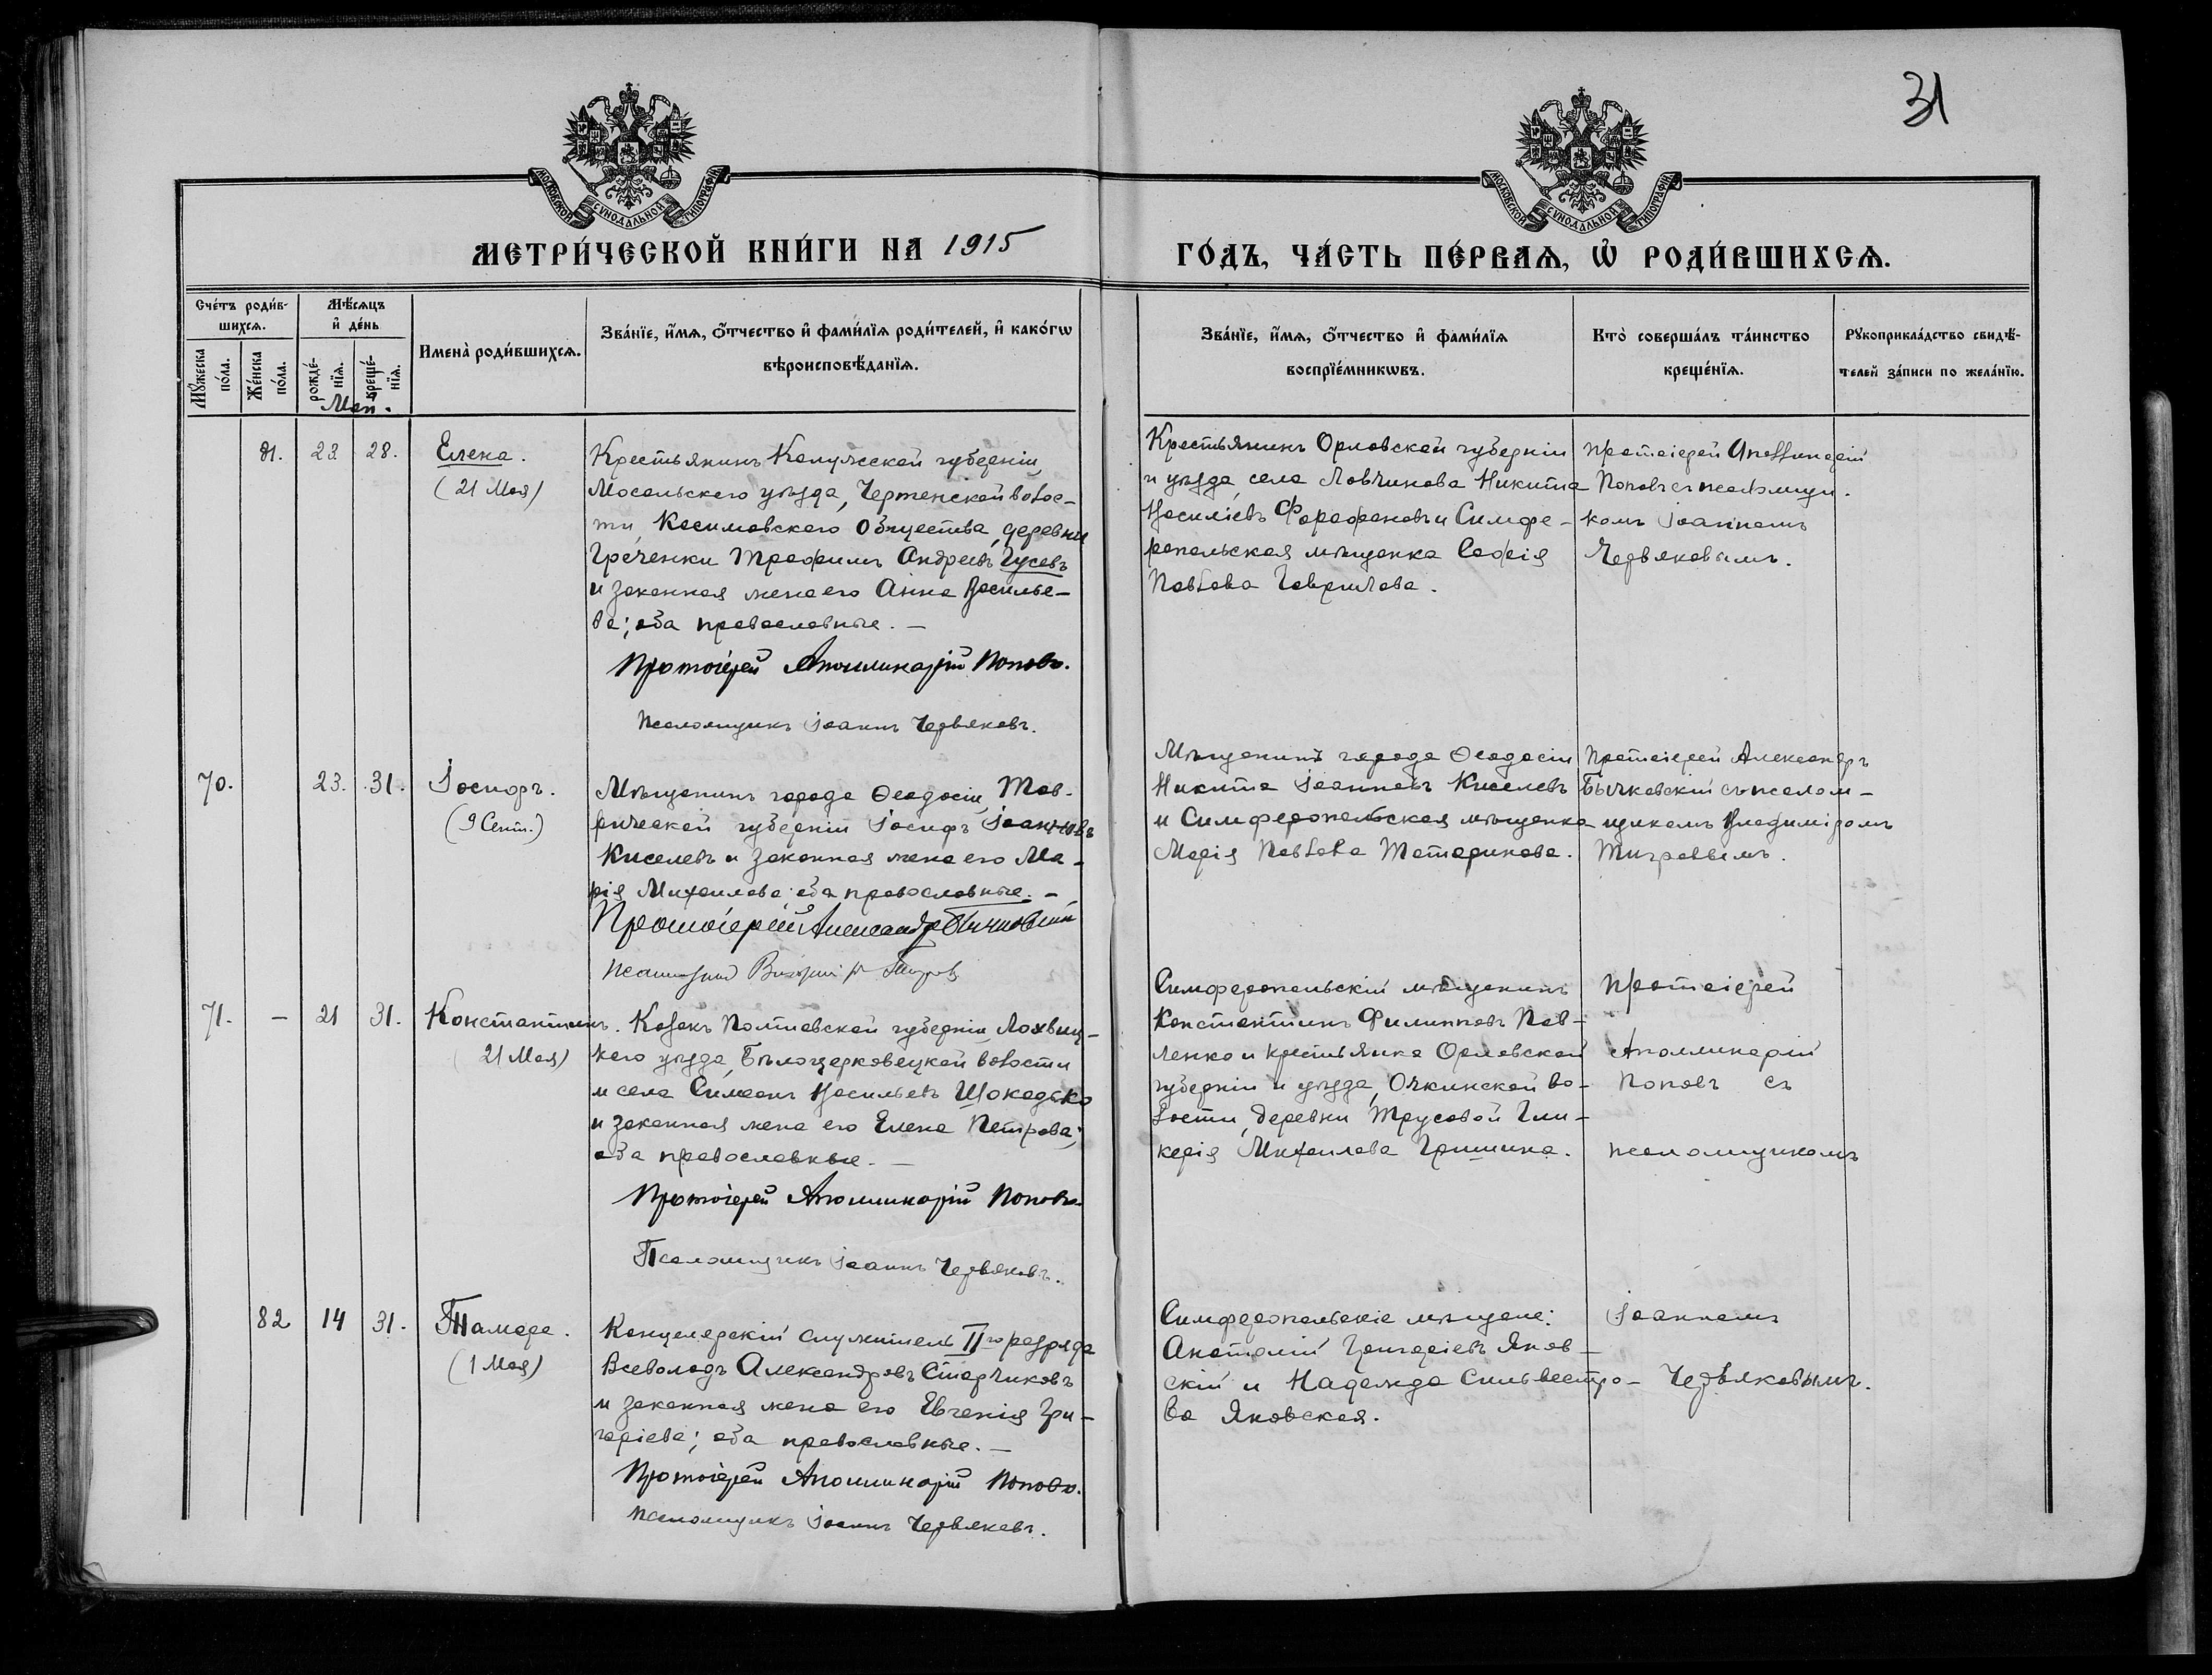 31
МОСКОВСКОЙ СѴНОДАЛЬНОЙ ТИПОГРАФІИ
МОСКОВСКОЙ СѴНОДАЛЬНОЙ ТИПОГРАФІИ
МЕТРИ́ЧЕСКОЙ КНИ́ГИ НА 1915
ГО́ДЪ, ЧА́СТЬ ПЕ́РВАѦ, Ѽ РОДИ́ВШИХСѦ.
Сче́тъ роди́в-
шихсѧ.
Мꙋ́жеска
по́ла.
Же́нска
по́ла.
Мѣ́сѧцъ
и҆ де́нь
рожде́-
нїѧ.
креще́-
нїѧ.
Мая.
Имена̀ роди́вшихсѧ.
Зва́нїе, и҆́мѧ, ѻ҆́тчество и҆ фами́лїѧ роди́телей, и҆ како́гѡ
вѣроисповѣ́данїѧ.
Зва́нїе, и҆́мѧ, ѻ҆́тчество и҆ фами́лїѧ
воспрїе́мникѡвъ.
Кто̀ соверша́лъ та́инство
креще́нїѧ.
Рꙋкоприкла́дство свидѣ́-
телей за́писи по жела́нїю.
81. 23 28. Елена.
(21 Мая)
Крестьянинъ Калужской губерніи,
Мосальскаго уѣзда, Чертенской волос-
ти, Касимовскаго Общества, деревни
Греченки Трофимъ Андреевъ Гусевъ
и законная жена его Анна Василье-
ва; оба православные. —
Протоіерей Аполлинарій Поповъ.
Псаломщикъ Іоаннъ Червяковъ.
Крестьянинъ Орловской губерніи
и уѣзда, села Ловчикова Никита
Василіевъ Фарафоновъ и Симфе-
ропольская мѣщанка Софія
Павлова Гаврилова.
Протоіерей Аполлинарій
Поповъ съ псаломщи-
комъ Іоанномъ
Червяковымъ.
70. 23. 31. Іосифъ.
(9 Сент.)
Мѣщанинъ города Ѳеодосіи, Тав-
рической губерніи Іосифъ Іоанновъ
Киселевъ и законная жена его Ма-
рія Михаилова; оба православные. —
Протоіерей Александръ Бычковскій
Мѣщанинъ города Ѳеодосіи
Никита Іоанновъ Киселевъ
и Симферопольская мѣщанка
Марія Павлова Татаринова.
Протоіерей Александръ
Бычковскій съ псалом-
щикомъ Владиміромъ
71. — 21 31. Константинъ.
(21 Мая)
Козакъ Полтавской губерніи, Лохвиц-
каго уѣзда, Бѣлоцерковецкой волости
и села Симеонъ Васильевъ Шокадько
и законная жена его Елена Петрова;
оба православные. —
Протоіерей Аполлинарій Поповъ.
Псаломщикъ Іоаннъ Червяковъ.
Симферопольскій мѣщанинъ
Константинъ Филипповъ Пав-
ленко и крестьянка Орловской
губерніи и уѣзда, Очкинской во-
лости, деревни Трусовой Гли-
керія Михаилова Гришина.
Протоіерей
Аполлинарій
Поповъ съ
псаломщикомъ
82 14 31. Тамара.
(1 Мая)
Канцелярскій служитель II го разряда
Всеволодъ Александровъ Старчиковъ
и законная жена его Евгенія Гри-
горіева; оба православные. —
Протоіерей Аполлинарій Поповъ.
Псаломщикъ Іоаннъ Червяковъ.
Симферопольскіе мѣщане:
Анатолій Григоріевъ Янов-
скій и Надежда Сильвестро-
ва Яновская.
Іоанномъ
Червяковымъ.